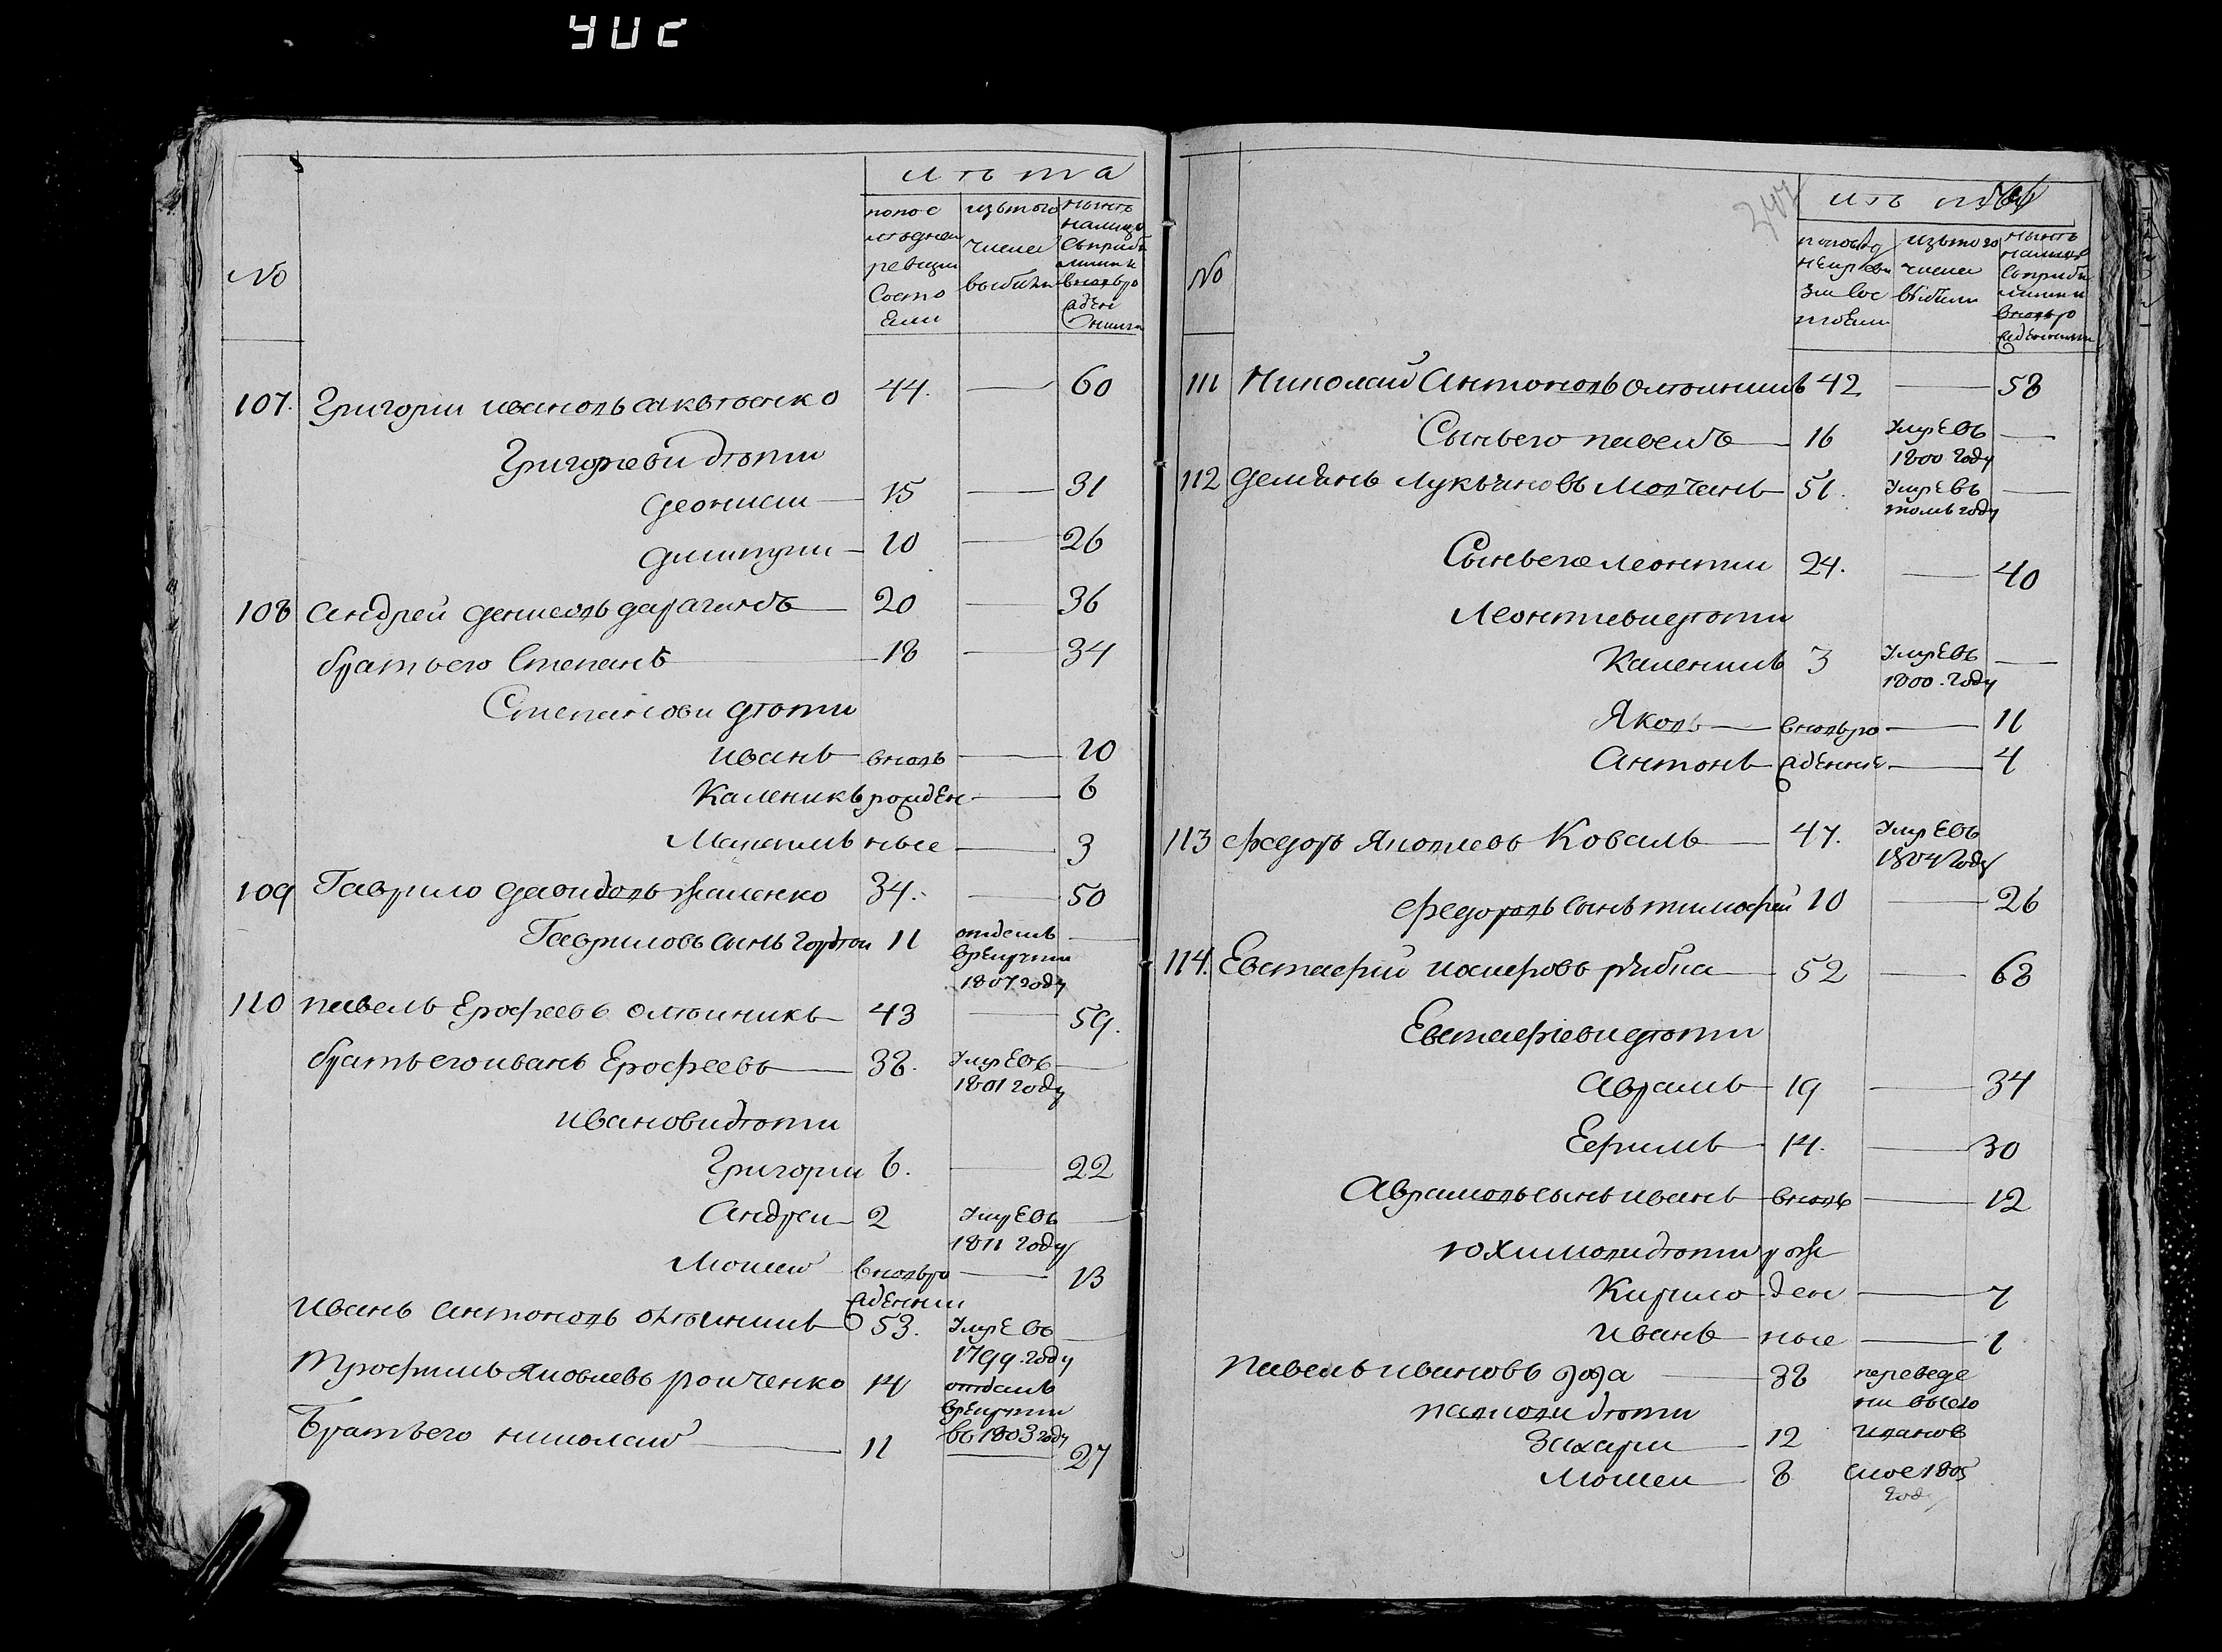 402
лѣта
№
по пос
лѣдней
ревизии
состо
яли
изъ того
числа
выбыли
нынѣ
на лицо
съ прибы
лыми и
вновь ро
жден
ными
107. Григории Ивановъ 44. — 60
Григориеви дѣти
Деонисии — 15 — 31
Дмитрии — 10 — 26
108 Андрей Денисовъ Дараганъ — 20 — 36
братъ его Степанъ — 18 — 34
Степанови дѣти
Иванъ вновь — 10
Каленикъ рожден — 6
ные — 3
109 Гаврило Давидовъ 34. — 50
Гавриловъ сынъ Гордѣи 11 отданъ —
в рекруты
1807 году
110 Павелъ Ерофеевъ Олѣиникъ 43 — 59.
братъ его Иванъ Ерофеевъ — 38. умре въ —
1801 году
Иванови дѣти
Григории 6. — 22
Андреи 2 умре въ —
1811 году
Моисеи вновь ро — 13
жденни
Иванъ Антоновъ Олѣиникъ 53. умре въ —
1799. году
Трофимъ Яковлевъ Роиченко 14 отданъ
в рекруты
въ 1803 году
Братъ его Николаи — 11 — 27
лѣта
№
по послѣд
неи реви
зии сос
тояли
изъ того
числа
выбыли
нынѣ
на лицо
съ прибы
лыми и
вновь ро
жденными
111 Николай Антоновъ Олѣиникъ 42 — 58
Сынъ его Павелъ — 16 умре въ —
1800 году
112 Демянъ Лукьяновъ Молчанъ 51. умре въ —
томъ году
Сынъ его Леонтии 24. — 40
Леонтиеви дѣти
Каленикъ 3 умре въ —
1800. году
Яковъ — вновь ро — 11
Антонъ жденние — 4
113 Федоръ Яковлевъ Коваль — 47. умре въ
1804 году
Федоровъ сынъ Тимофей 10 — 26
114. Евстафий Иосифовъ Рибка — 52 — 68
Евстафіеви дѣти
Аврамъ — 19 — 34
Ефимъ 14. — 30
Аврамовъ сынъ Иванъ вновь — 12
Юхимови дѣти рож
Кирило ден — 7
Иванъ ные — 1
Павелъ Ивановъ — 38 переведе
ни в село
Павлови дѣти
Захарии — 12 Иванов
Моисеи — 8 ское 1805
году